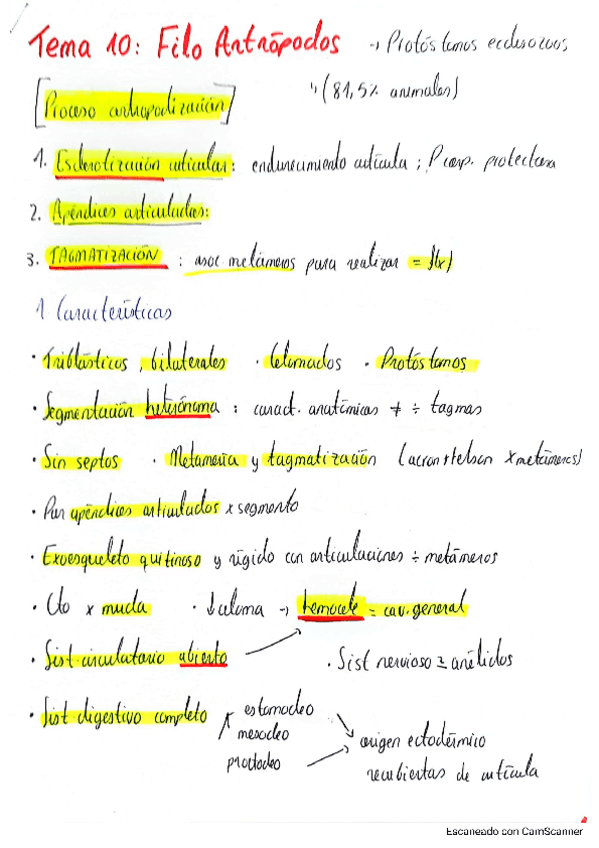 Tema 10: Filo Artrópodos → Protóstomos ecdisozoos
↳ (81,5% animales)
[Proceso artropodización]
1. Esclerotización cuticular: endurecimiento cutícula; P corp. protectora
2. Apéndices articulados:
3. TAGMATIZACIÓN : asoc metámeros para realizar = f(x)
1. Características
· Triblásticos, bilaterales · Celomados · Protóstomos
· Segmentación heterónoma : caract. anatómicas ≠ ÷ tagmas
· Sin septos · Metamería y tagmatización (acron+telson x metámeros)
· Par apéndices articulados x segmento
· Exoesqueleto quitinoso y rígido con articulaciones ÷ metámeros
· Cto x muda · ↓celoma → hemocele = cav. general
· Sist circulatorio abierto · Sist nervioso ≈ anélidos
· Sist digestivo completo
estomodeo
mesodeo
proctodeo
origen ectodérmico
recubiertas de cutícula
Escaneado con CamScanner